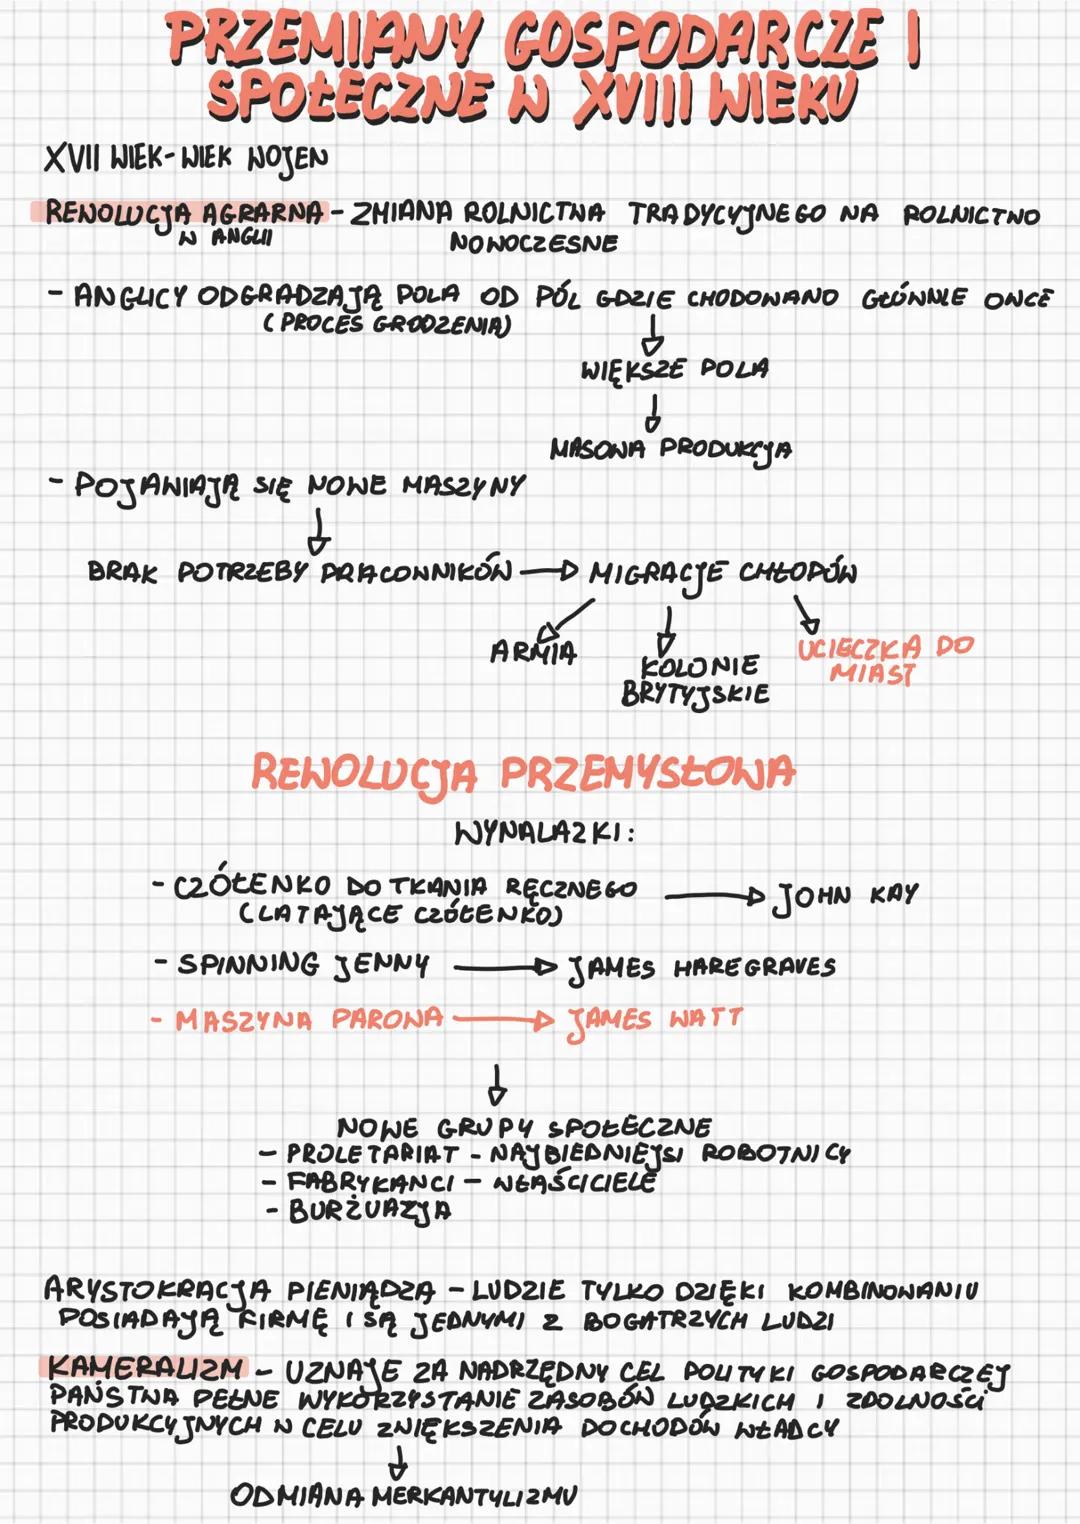 PRZEMIANY GOSPODARCZE I
SPOŁECZNE W XVIII WIEKU
XVII WIEK - WIEK WOJEN
REWOLUCJA AGRARNA - ZMIANA ROLNICTWA TRADYCYJNEGO NA ROLNICTWO
W ANGLII NOWOCZESNE
- ANGLICY ODGRADZAJĄ POLA OD PÓL GDZIE CHODOWANO GŁÓWNIE OWCE
(PROCES GRODZENIA)
WIĘKSZE POLA
MASOWA PRODUKCJA
- POJAWIAJĄ SIĘ NOWE MASZYNY
BRAK POTRZEBY PRACOWNIKÓW → MIGRACJE CHŁOPÓW
ARMIA
KOLONIE
BRYTYJSKIE
UCIECZKA DO
MIAST
REWOLUCJA PRZEMYSŁOWA
WYNALAZKI:
- CZÓŁENKO DO TKANIA RĘCZNEGO → JOHN KAY
(LATAJĄCE CZÓŁENKO)
- SPINNING JENNY → JAMES HAREGRAVES
- MASZYNA PAROWA → JAMES WATT
NOWE GRUPY SPOŁECZNE
- PROLETARIAT - NAJBIEDNIEJSI ROBOTNICY
- FABRYKANCI - WŁAŚCICIELE
- BURŻUAZJA
ARYSTOKRACJA PIENIĄDZA - LUDZIE TYLKO DZIĘKI KOMBINOWANIU
POSIADAJĄ FIRMĘ I SĄ JEDNYMI Z BOGATRZYCH LUDZI
KAMERALIZM - UZNAJE ZA NADRZĘDNY CEL POLITYKI GOSPODARCZEJ
PAŃSTWA PEŁNE WYKORZYSTANIE ZASOBÓW LUDZKICH I ZDOLNOŚCI
PRODUKCYJNYCH W CELU ZWIĘKSZENIA DOCHODÓW WŁADCY
ODMIANA MERKANTYLIZMU